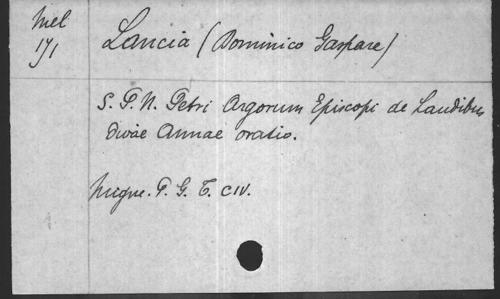 Mel
171
Lancia (Dominico Gaspare)
S. P. N. Petri Argorum Episcopi de Laudibus
Divae Annae oratio.
Migne. P. G. T. CIV.